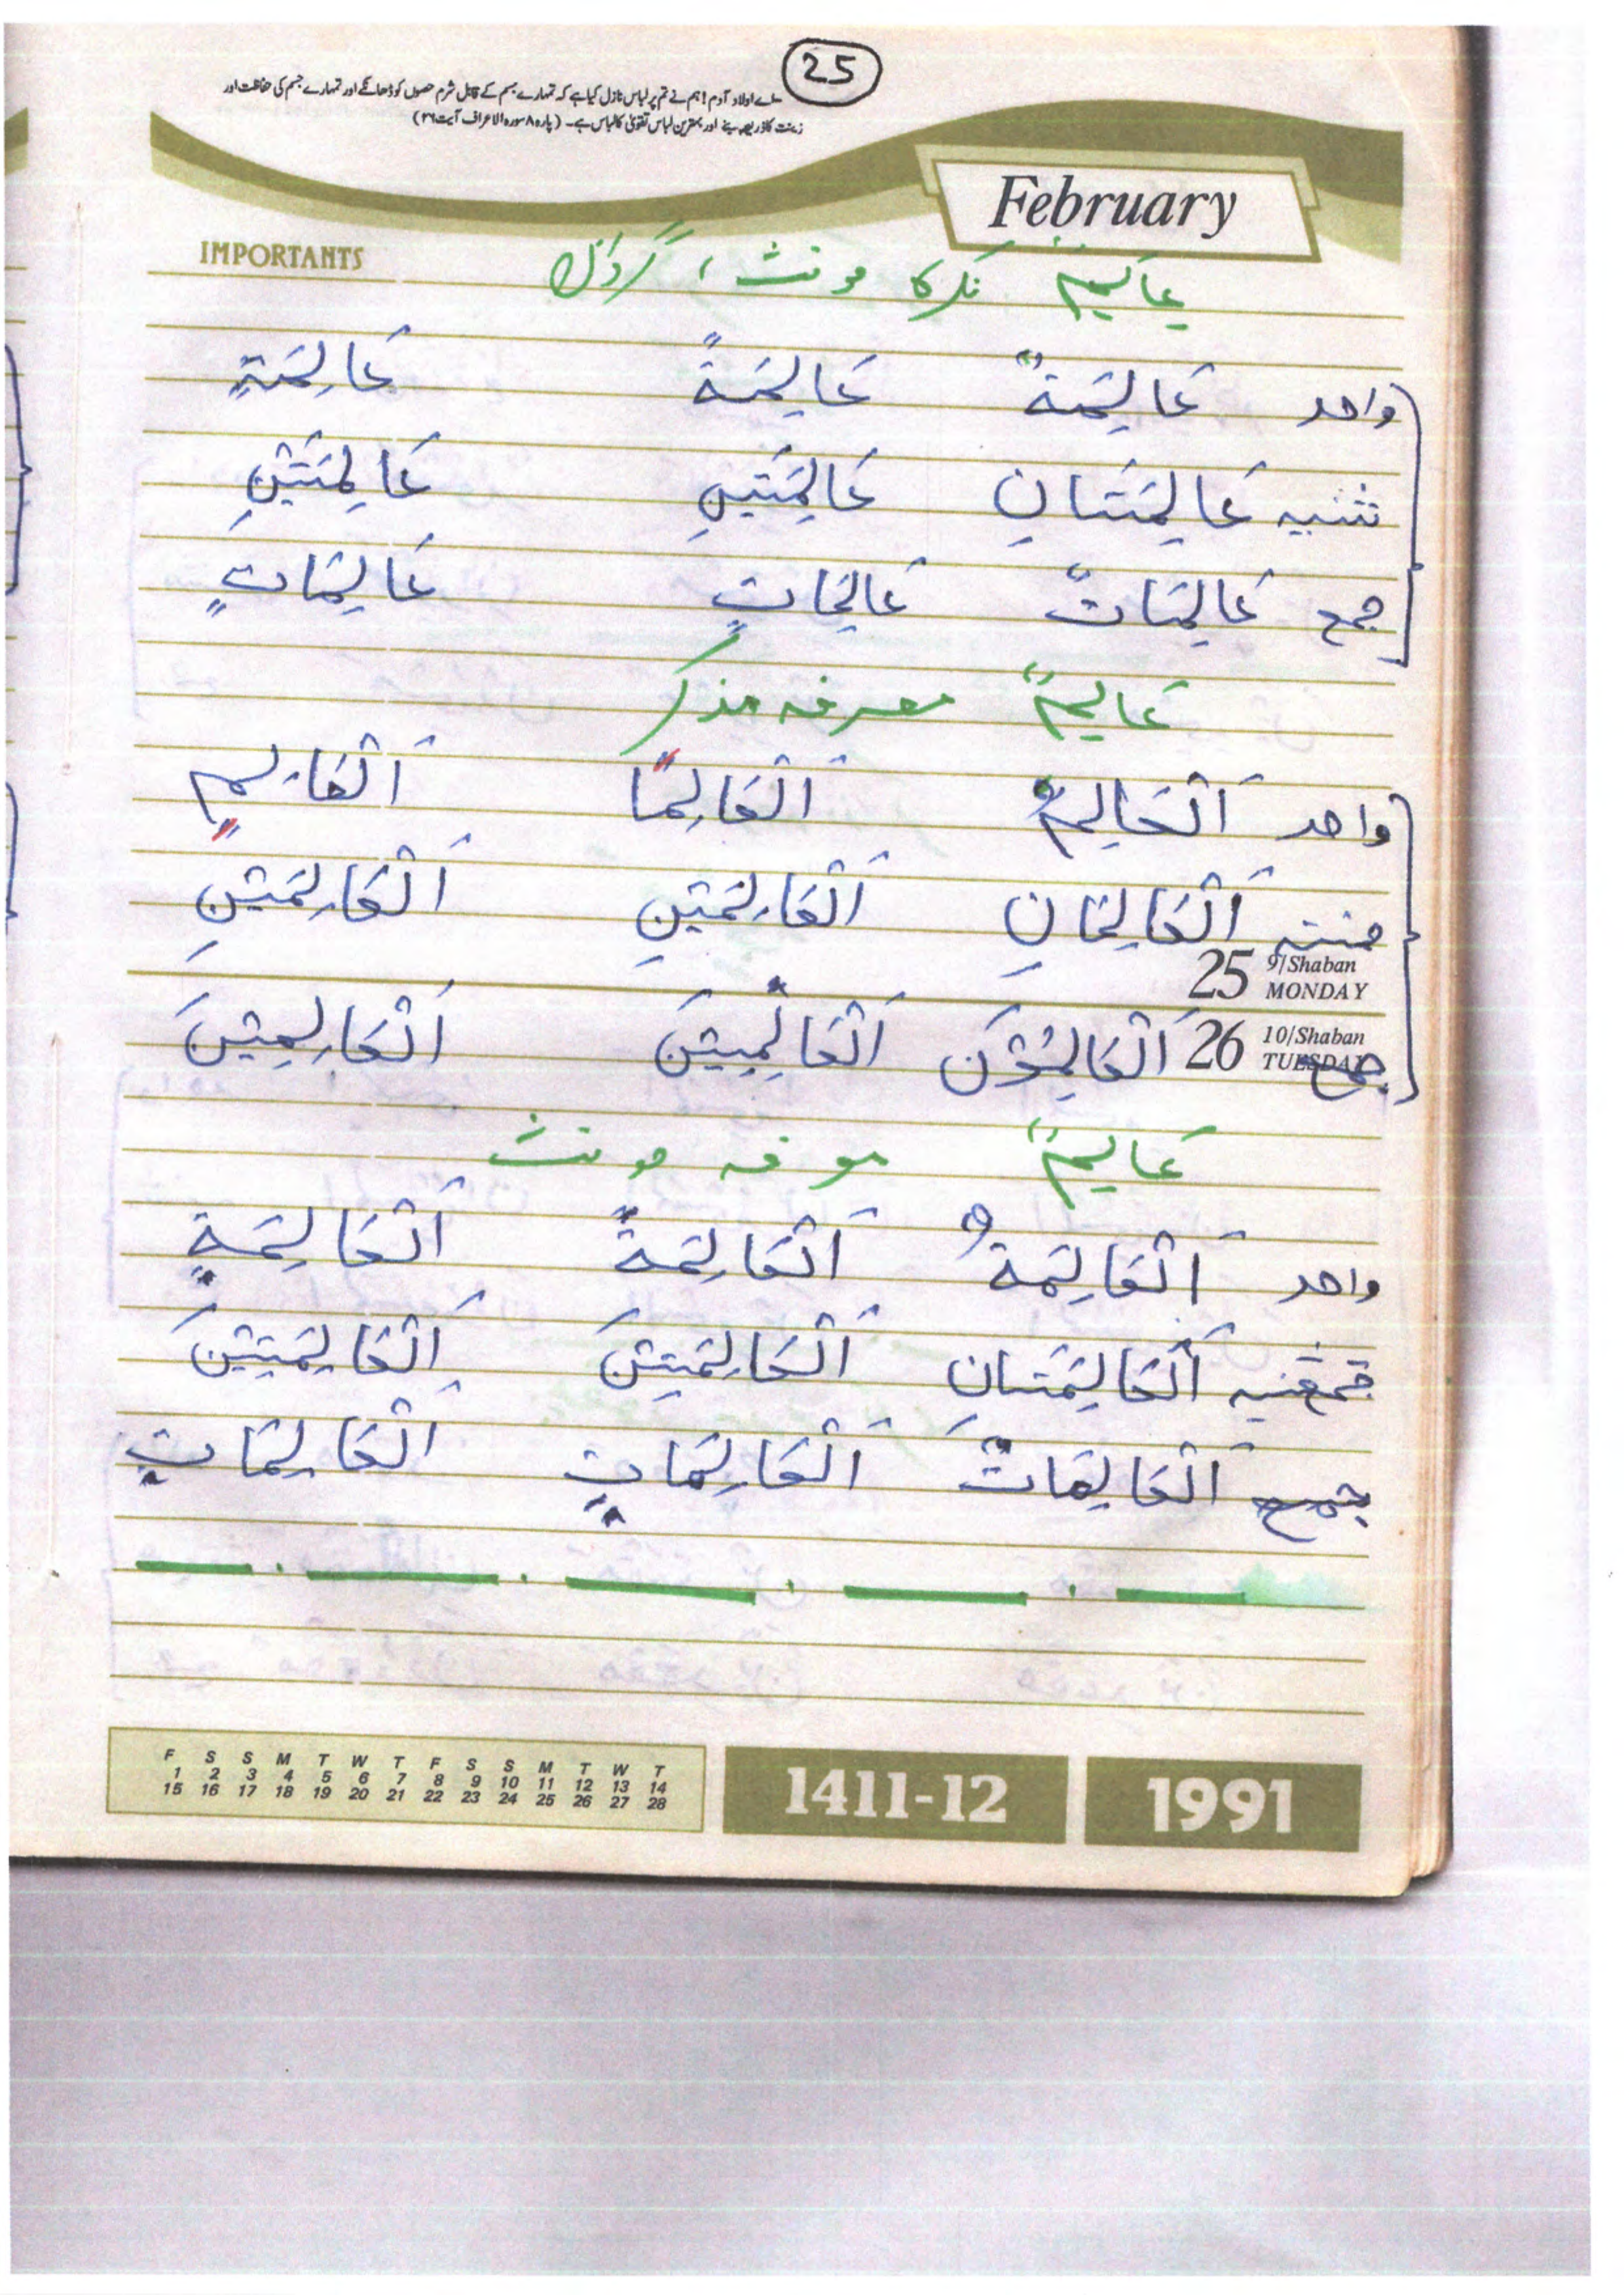 25
اے اولاد آدم! ہم نے تم پر لباس نازل کیا ہے کہ تمہارے جسم کے قابل شرم حصوں کو ڈھانکے اور تمہارے جسم کی حفاظت اور
زینت کا ذریعہ بنے اور بہترین لباس تقویٰ کا لباس ہے۔ (پارہ ۸ سورہ الاعراف آیت ۲۶)
February
IMPORTANTS
عالِمٌ نکرکا مونث، گردان
واحد عَالِمَةٌ عَالِمَةً عَالِمَةٍ
تثنیہ عَالِمَتَانِ عَالِمَتَيْنِ عَالِمَتَيْنِ
جمع عَالِمَاتٌ عَالِمَاتٍ عَالِمَاتٍ
عَالِمٌ معرفہ مذکر
واحد اَلْعَالِمُ اَلْعَالِمًا اَلْعَالِمٍ
اَلْعَالِمَانِ اَلْعَالِمَيْنِ اَلْعَالِمَيْنِ
25 9/Shaban MONDAY
26 10/Shaban TUESDAY
جمع اَلْعَالِمُوْنَ اَلْعَالِمِيْنَ اَلْعَالِمِيْنَ
عَالِمٌ معرفہ مونث
واحد اَلْعَالِمَةُ اَلْعَالِمَةً اَلْعَالِمَةٍ
اَلْعَالِمَتَانِ اَلْعَالِمَتَيْنَ اَلْعَالِمَتَيْنَ
جمع اَلْعَالِمَاتٌ اَلْعَالِمَاتٍ اَلْعَالِمَاتٍ
F S S M T W T F S S M T W T
1 2 3 4 5 6 7 8 9 10 11 12 13 14
15 16 17 18 19 20 21 22 23 24 25 26 27 28
1411-12 1991